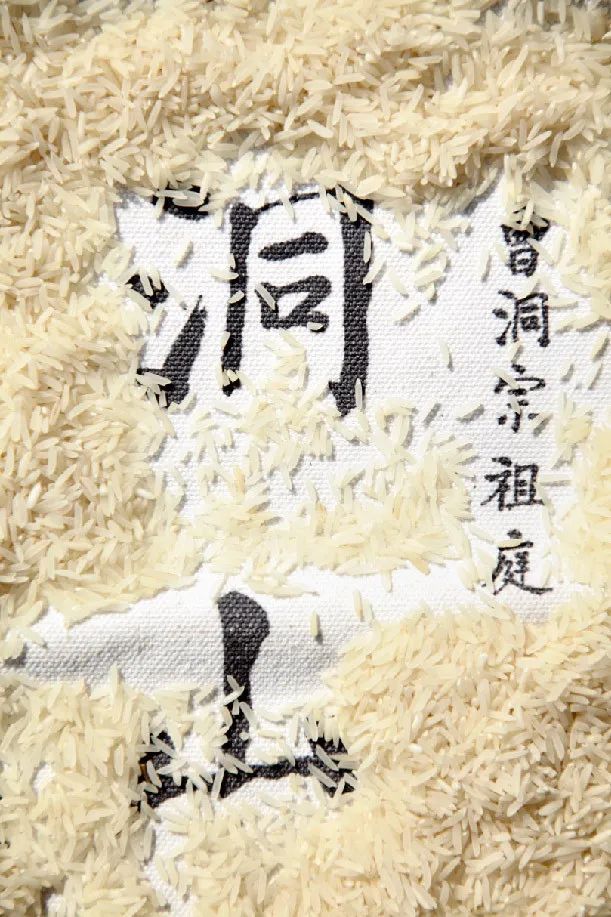 曹洞宗祖庭
洞山